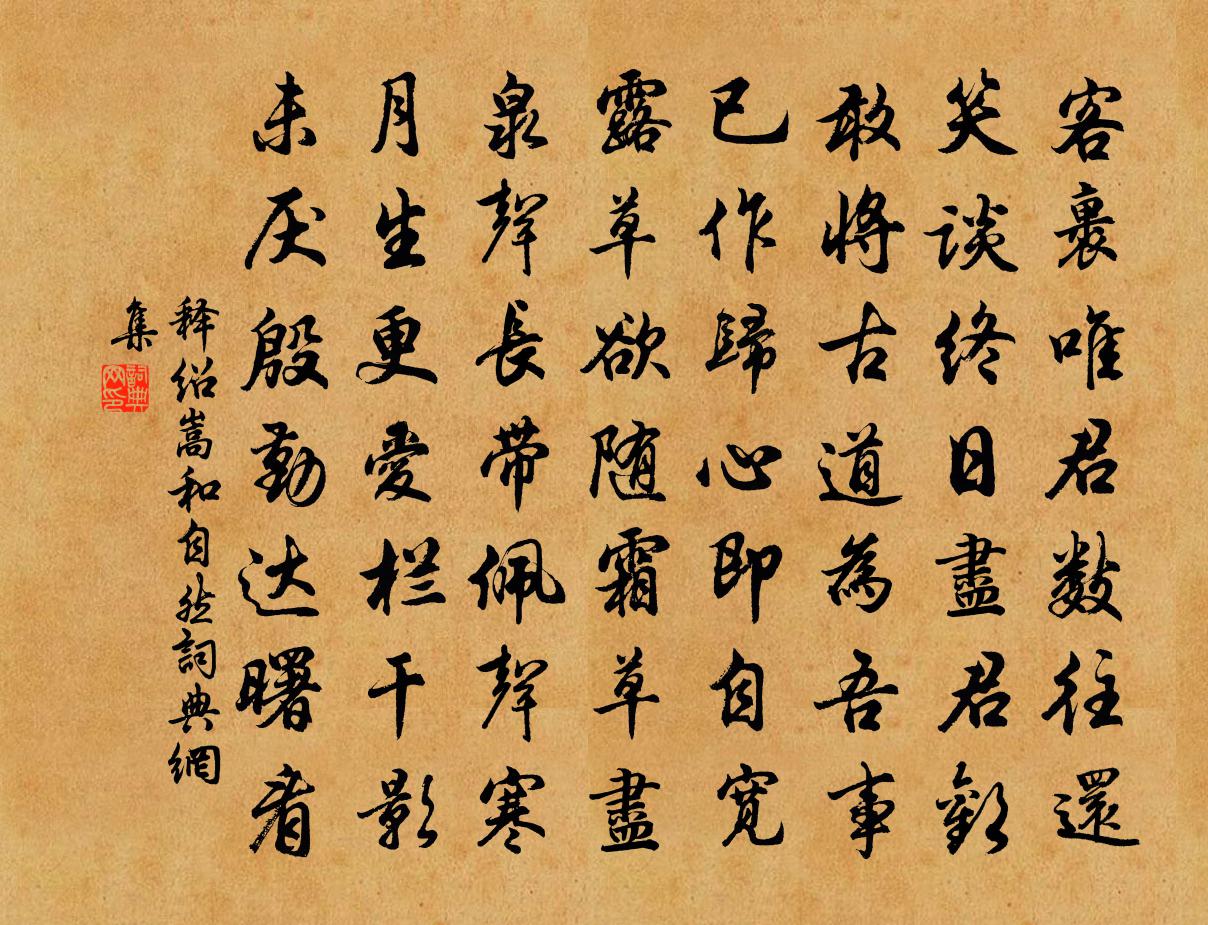 客裏唯君數往還
笑談終日盡君歡
敢將古道為吾事
已作歸心即自寬
露草欲随霜草盡
泉聲長帶佩聲寒
月生更愛栏干影
未厌殷勤达曙看
释绍嵩和自然詞典網
集
詞典网印